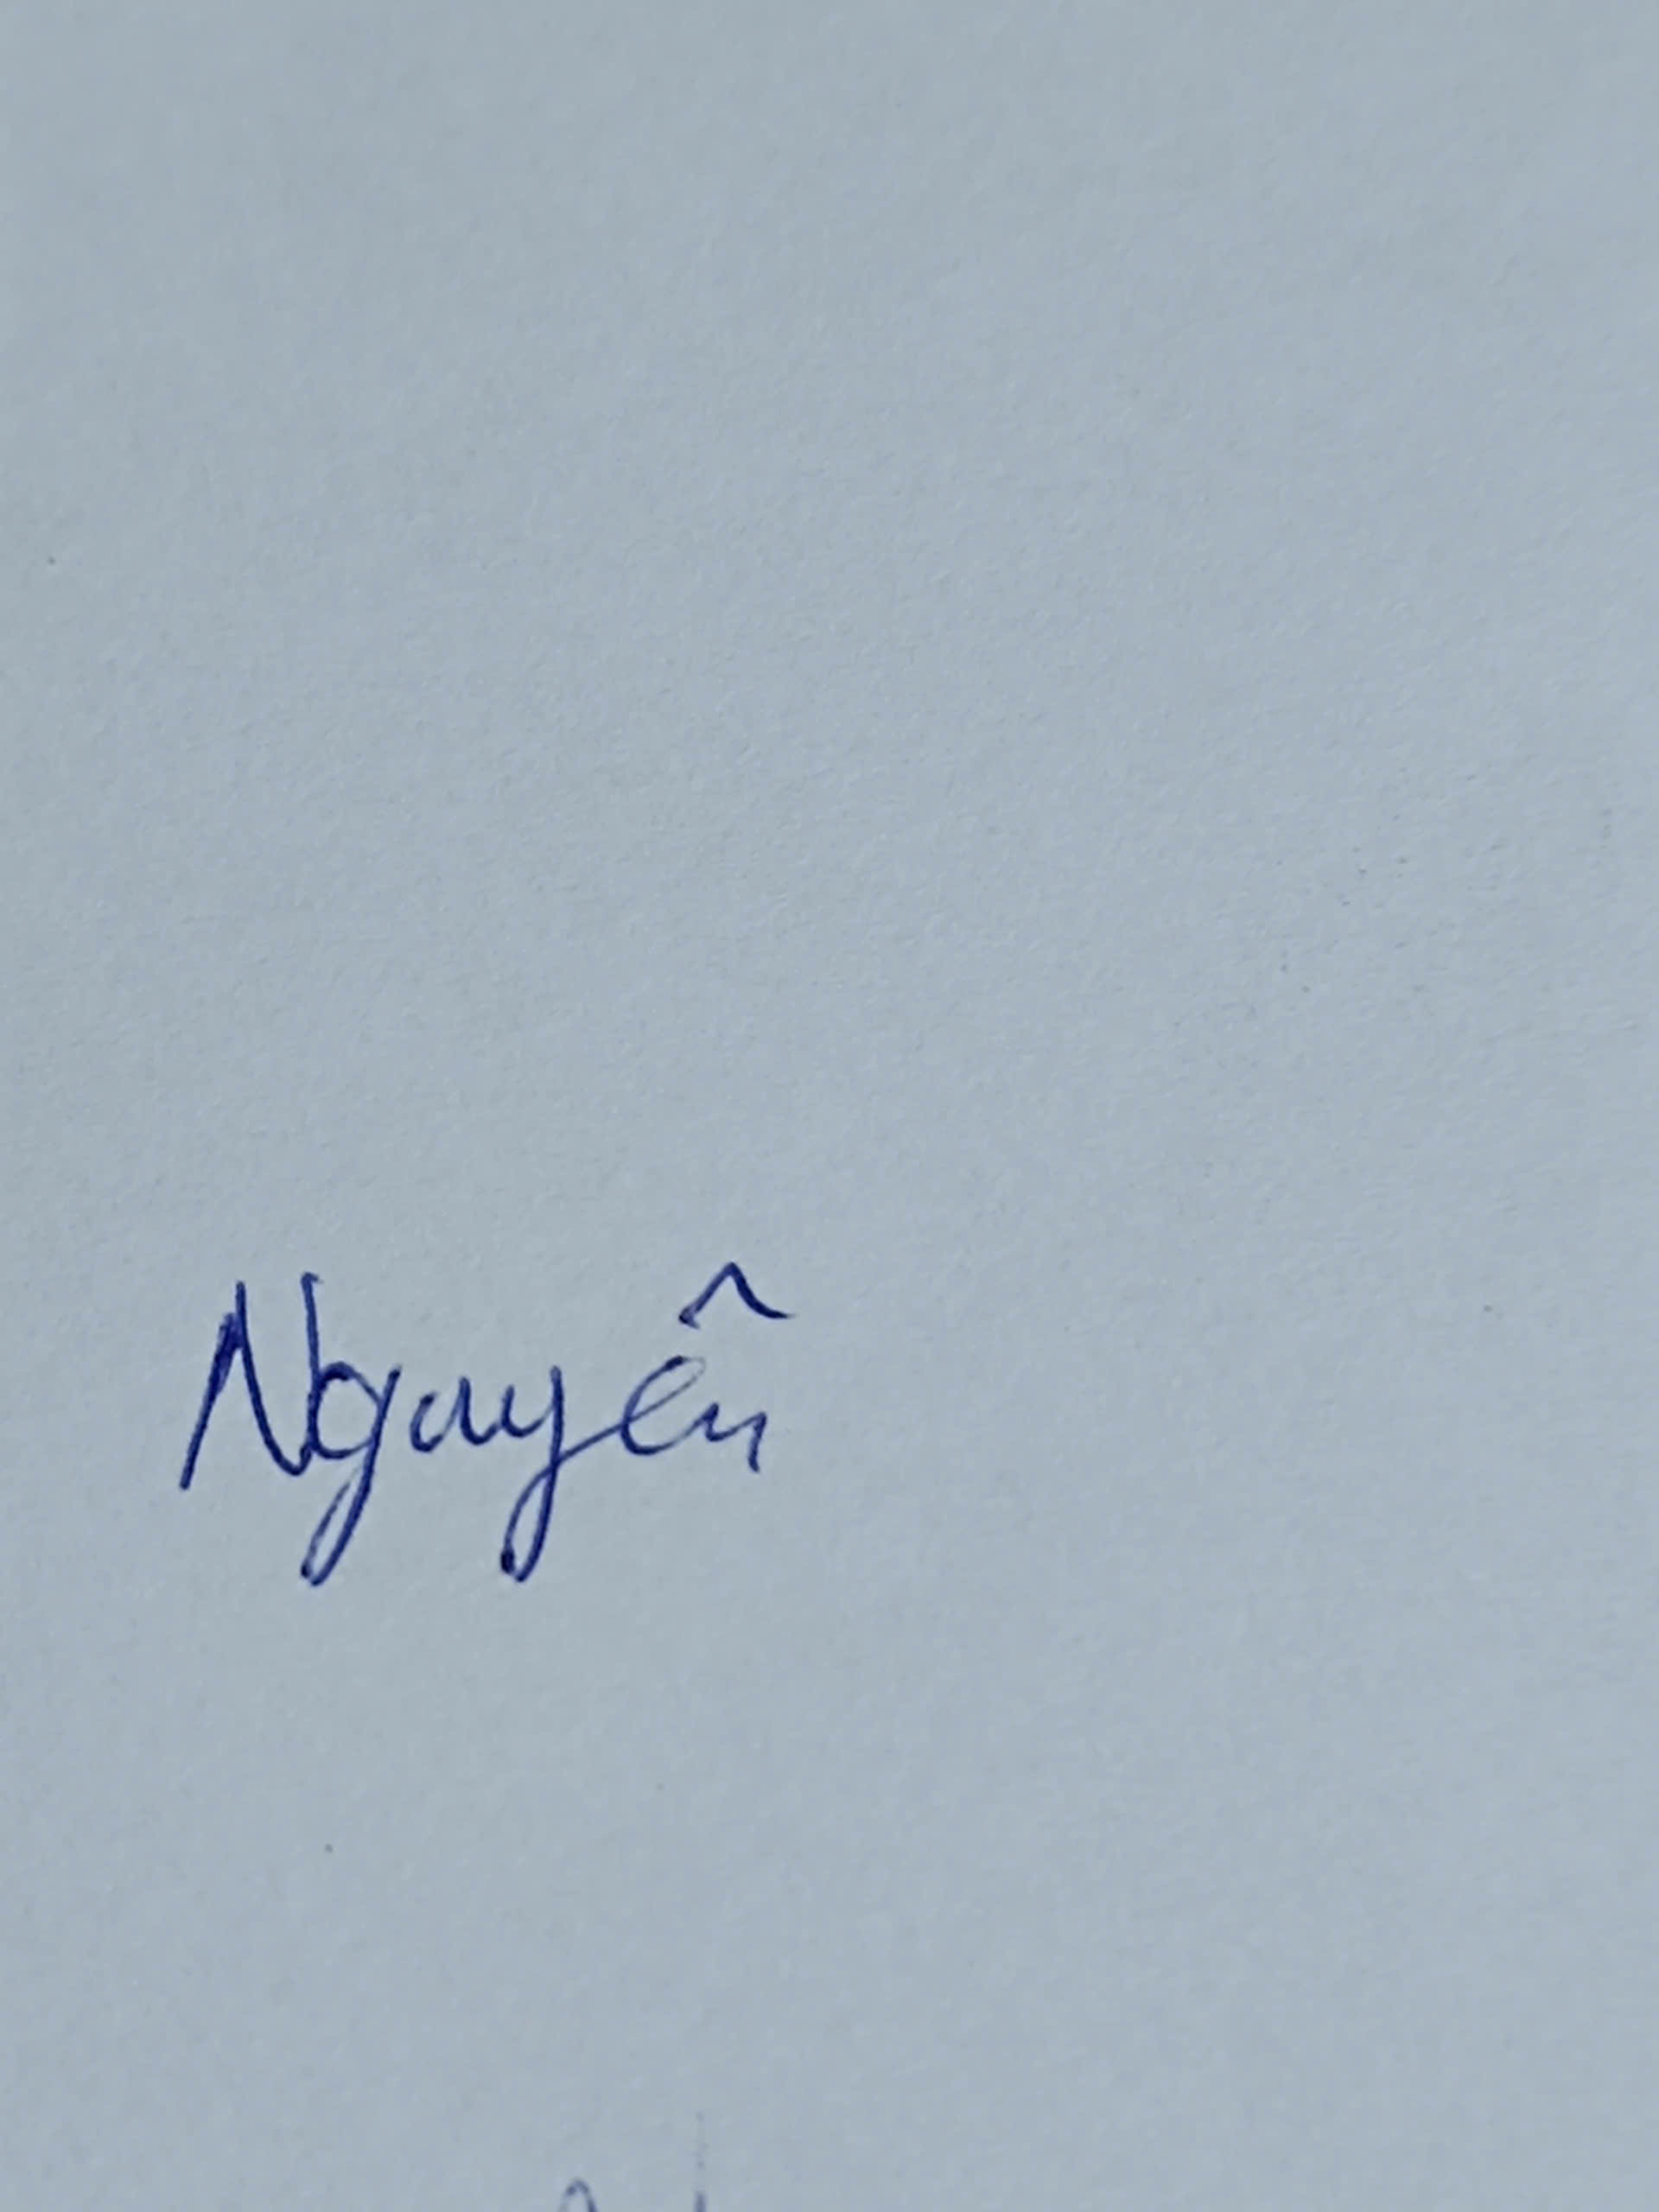 Nguyên